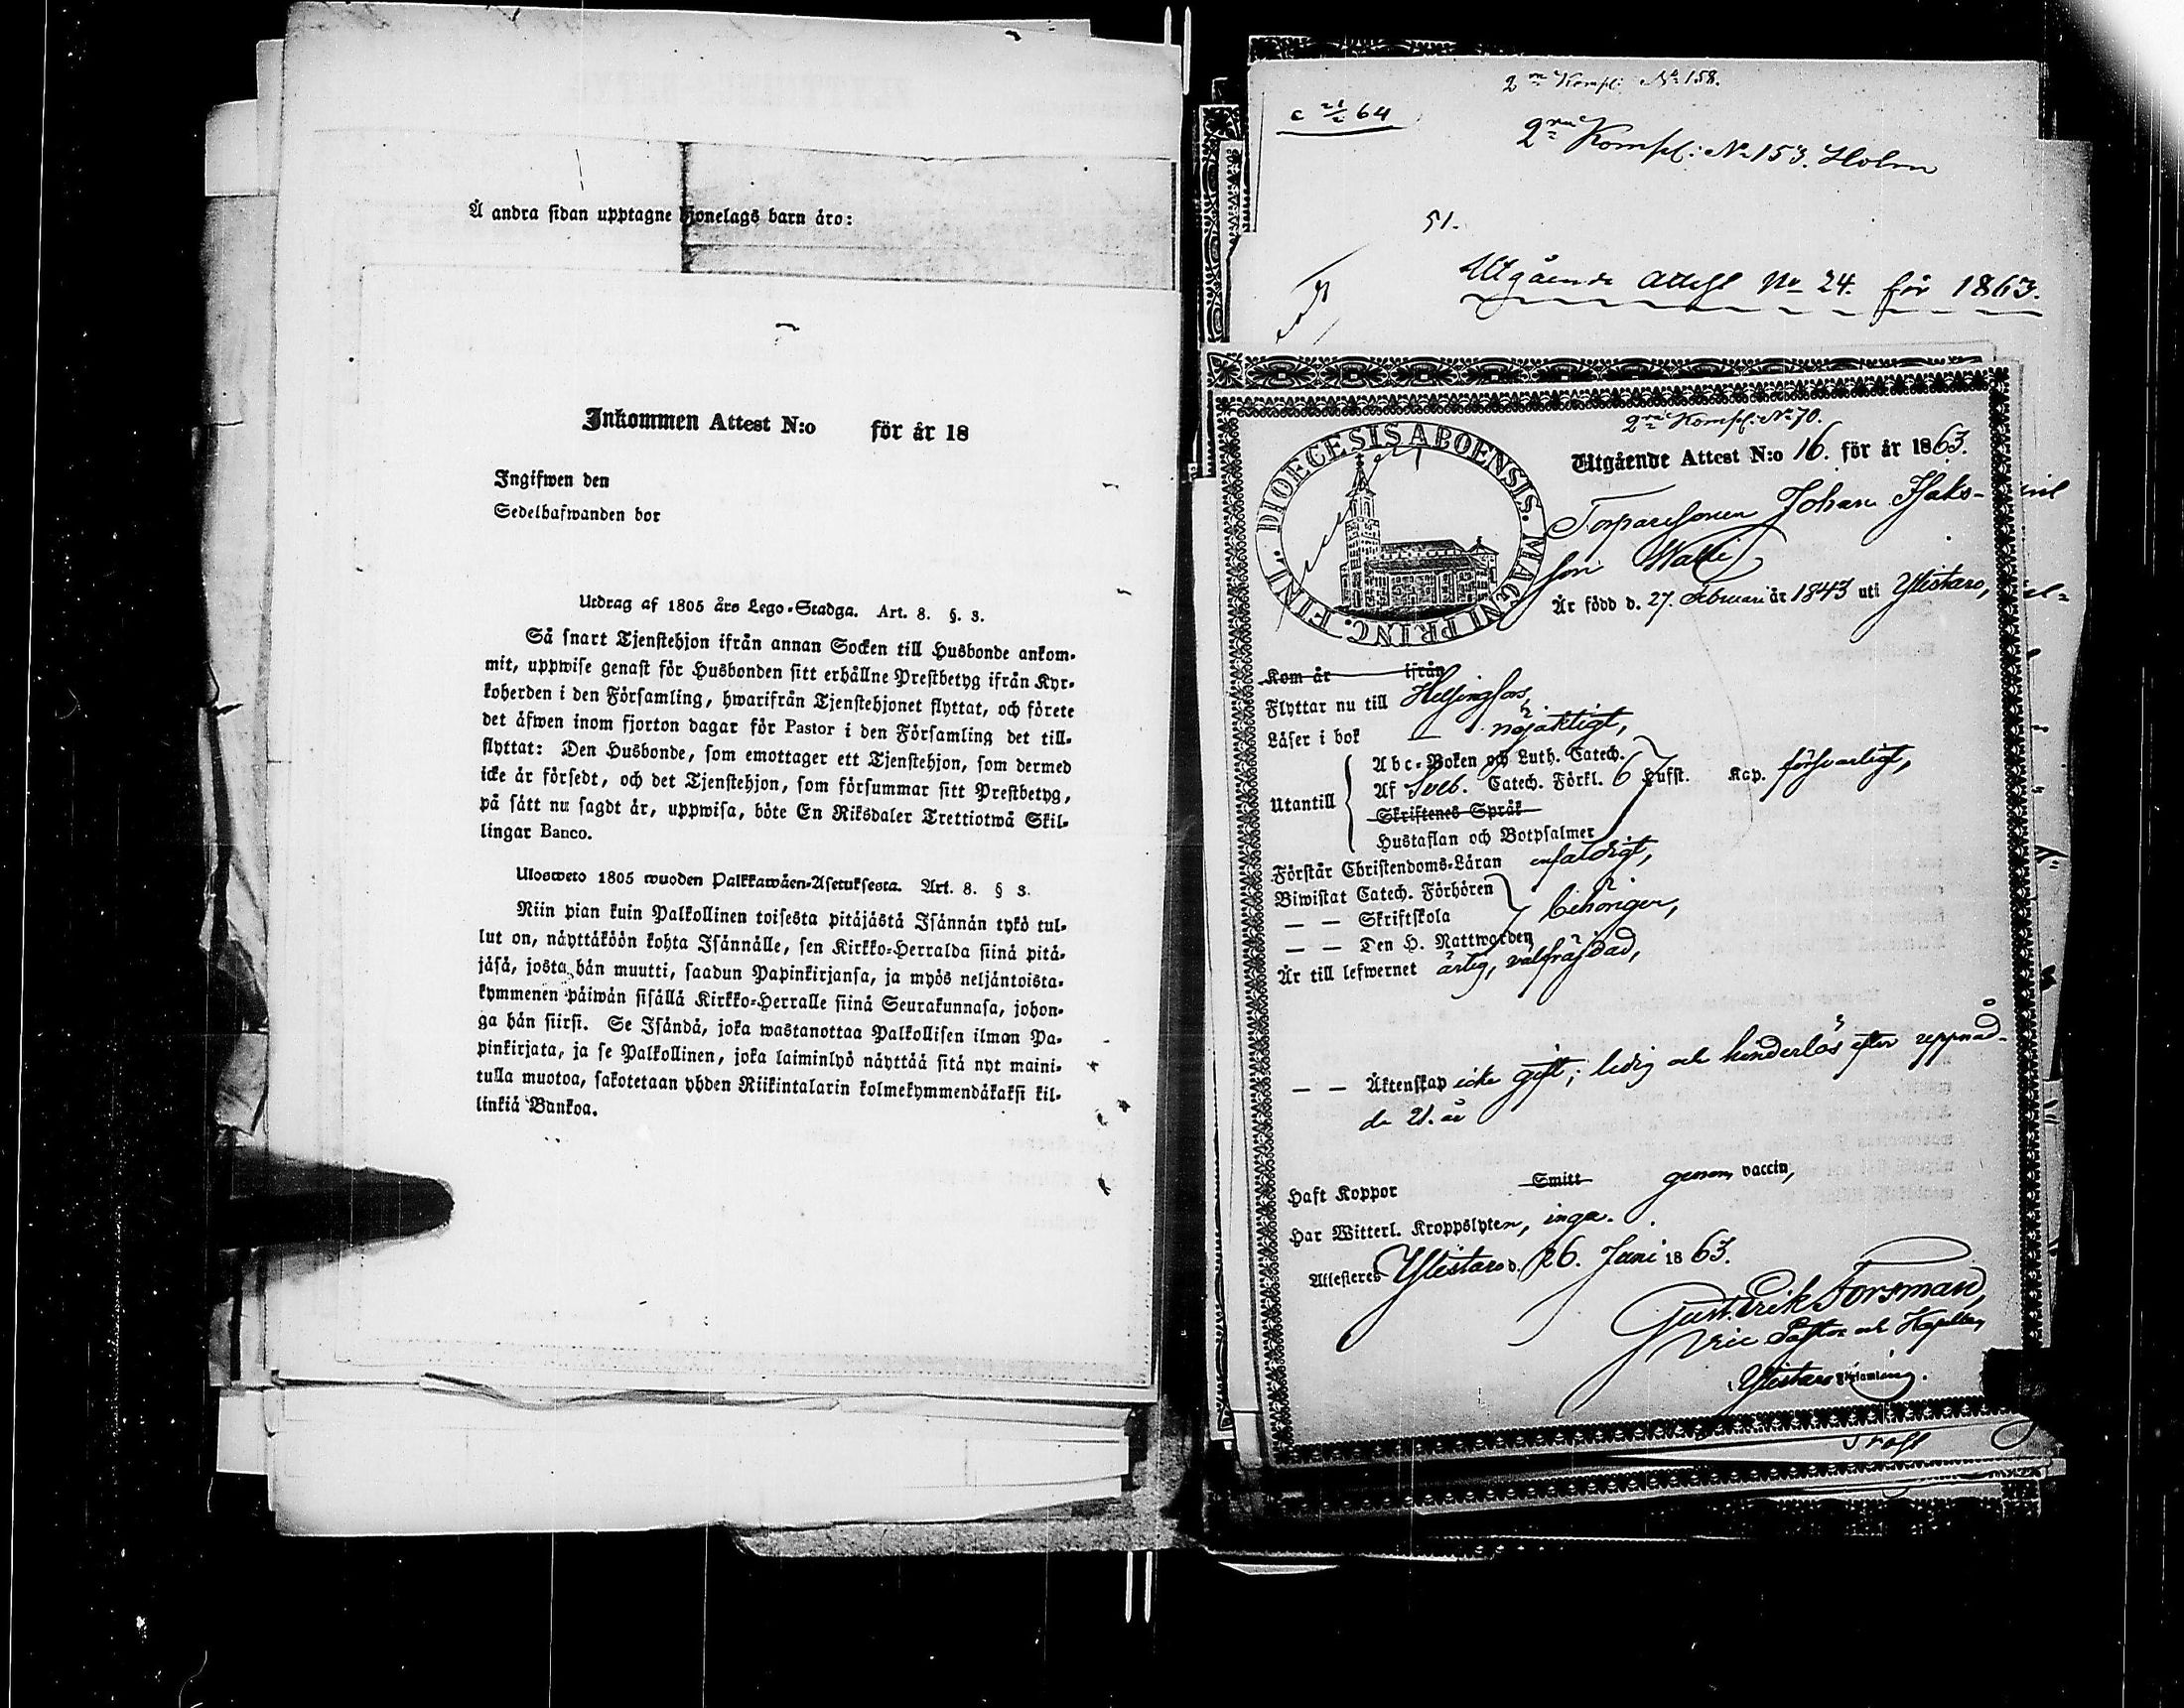 Å andra sidan upptagne hjonelags barn äro:
Inkommen Attest N:o för år 18
Ingifwen den
Sedelhafwanden bor
Utdrag af 1805 års Lego-Stadga. Art. 8. §. 3.
Så snart Tjenstehjon ifrån annan Socken till Husbonde ankom-
mit, uppwise genast för Husbonden sitt erhållne Prestbetyg ifrån Kyr-
koherden i den Församling, hwarifrån Tjenstehjonet flyttat, och förete
det äfwen inom fjorton dagar för Pastor i den Församling det till-
flyttat: Den Husbonde, som emottager ett Tjenstehjon, som dermed
icke är försedt, och det Tjenstehjon, som försummar sitt Prestbetyg,
på sätt nu sagdt är, uppwisa, böte En Riksdaler Trettiotwå Skil-
lingar Banco.
Ulosweto 1805 wuoden Palkkawäen-Asetuksesta. Art. 8. § 3.
Niin pian kuin Palkollinen toisesta pitäjästä Isännän tykö tul-
lut on, näyttäköön kohta Isännälle, sen Kirkko-Herralda siinä pitä-
jäsä, josta hän muutti, saadun Papinkirjansa, ja myös neljäntoista-
kymmenen päiwän sisällä Kirkko-Herralle siinä Seurakunnasa, johon-
ga hän siirsi. Se Isändä, joka wastanottaa Palkollisen ilman Pa-
pinkirjata, ja se Palkollinen, joka laiminlyö näyttää sitä nyt maini-
tulla muotoa, sakotetaan yhden Riikintalarin kolmekymmendäkaksi kil-
linkiä Bankoa.
2ra Kompl: No 158.
c 21/2 64
2ra Kompl: No 153. Holm
51.
Utgående Attest No 24. för 1863.
2ra Kompl: No 70.
DIOECESIS ABOENSIS. MAGNI PRINC. FINL.
Utgående Attest N:o 16. för år 1863.
Torparesonen Johan Isaks-
son Walli
Är född d. 27. Februari år 1843 uti Ylistaro,
Kom år ifrån
Flyttar nu till Helsingfors,
Läser i bok nöjaktigt,
Utantill
Abc-Boken och Luth. Catech.
Af Sveb. Catech. Förkl. 6 Hufst. Kap. försvarligt,
Skriftenes Språk
Hustaflan och Botpsalmer
Förstår Christendoms-Läran enfaldigt,
Biwistat Catech. Förhören
— — Skriftskola behörigen,
— — Den H. Nattwarden
Är till lefwernet ärlig, välfräjdad,
— — Äktenskap icke gift; ledig och hinderlös efter uppnåd-
de 21. år
Haft Koppor Smitt genom vaccin,
Har Witterl. Kroppslyten, inga.
Attesteres Ylistaro d. 26. Juni 1863.
Gust. Erik Forsman,
Vice Pastor och Kapellan
i Ylistaro Församling.